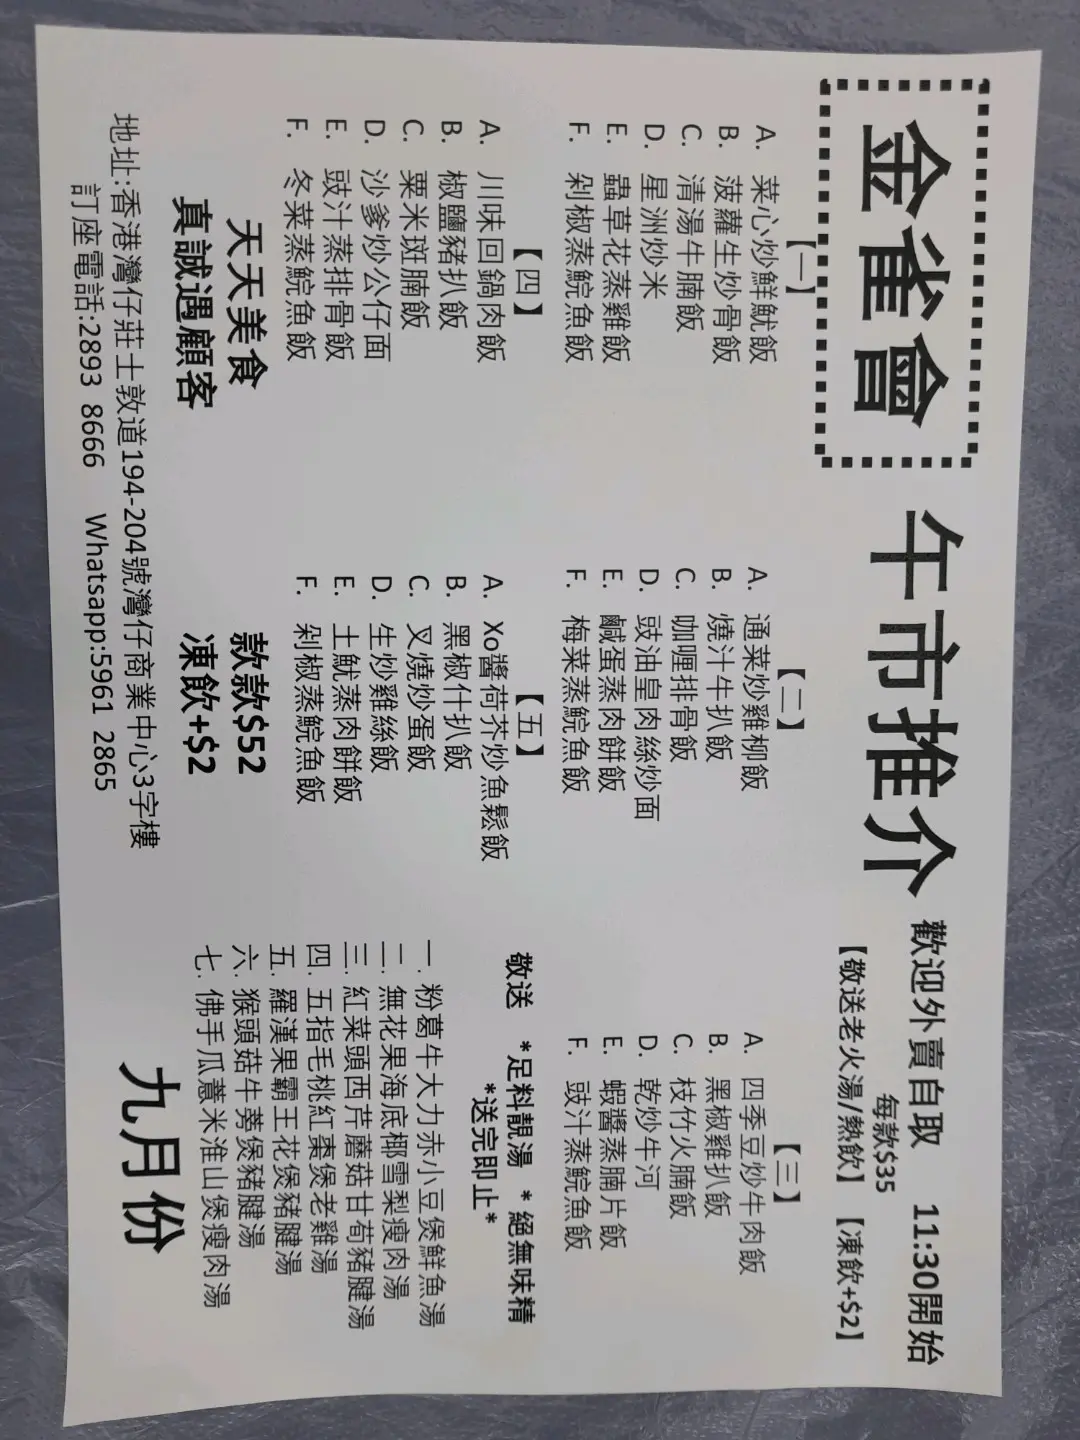 金雀會 午市推介
歡迎外賣自取 11:30開始
每款$35
【敬送老火湯/熱飲】【凍飲+$2】
【一】
A. 菜心炒鮮魷飯
B. 菠蘿生炒骨飯
C. 清湯牛腩飯
D. 星洲炒米
E. 蟲草花蒸雞飯
F. 剁椒蒸鯇魚飯
【二】
A. 通菜炒雞柳飯
B. 燒汁牛扒飯
C. 咖喱排骨飯
D. 豉油皇肉絲炒面
E. 鹹蛋蒸肉餅飯
F. 梅菜蒸鯇魚飯
【三】
A. 四季豆炒牛肉飯
B. 黑椒雞扒飯
C. 枝竹火腩飯
D. 乾炒牛河
E. 蝦醬蒸腩片飯
F. 豉汁蒸鯇魚飯
【四】
A. 川味回鍋肉飯
B. 椒鹽豬扒飯
C. 粟米斑腩飯
D. 沙爹炒公仔面
E. 豉汁蒸排骨飯
F. 冬菜蒸鯇魚飯
【五】
A. Xo醬荷芥炒魚鬆飯
B. 黑椒什扒飯
C. 叉燒炒蛋飯
D. 生炒雞絲飯
E. 土魷蒸肉餅飯
F. 剁椒蒸鯇魚飯
敬送 *足料靚湯 *絕無味精
*送完即止*
一. 粉葛牛大力赤小豆煲鮮魚湯
二. 無花果海底椰雪梨瘦肉湯
三. 紅菜頭西芹蘑菇甘荀豬腱湯
四. 五指毛桃紅棗煲老雞湯
五. 羅漢果霸王花煲豬腱湯
六. 猴頭菇牛蒡煲豬腱湯
七. 佛手瓜薏米淮山煲瘦肉湯
天天美食 款款$52
真誠遇顧客 凍飲+$2
九月份
地址:香港灣仔莊士敦道194-204號灣仔商業中心3字樓
訂座電話:2893 8666 Whatsapp:5961 2865